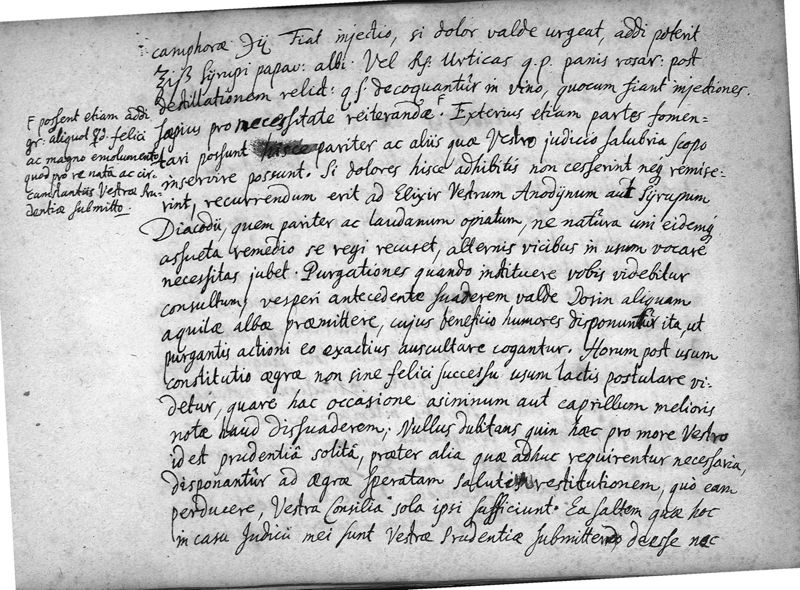 camphoræ ℈ij Fiat injectio, si dolor valde urgeat, addi poterit
℥iß Syrupi papav: albi. Vel ℞: Urticas q.p. panis rosar: post
destillationem relict: q s decoquantur in vino, quocum fiant injectiones.
sæpius pro necessitate reiterandæ F. Exterius etiam partes fomen-
tari possunt pariter ac aliis quæ Vestro judicio salubria scopo
inservire possunt. Si dolores hisce adhibitis non cesserint neq remise-
rint, recurrendum erit ad Elixir Vestrum Anodynum aut Syrupum
Diacodii, quem pariter ac laudanum opiatum, ne natura uni eidemq
assueta remedio se regi recuset, alternis vicibus in usum vocare
necessitas jubet. Purgationes quando instituere vobis videbitur
consultum, vesperi antecedente suaderem valde Dosin aliquam
aquilæ albæ præmittere, cujus beneficio humores disponuntur ita, ut
purgantis actioni eo exactius auscultare cogantur. Horum post usum
constitutio ægræ non sine felici successu usum lactis postulare vi-
detur, quare hac occasione asininum aut caprillum melioris
notæ haud dissuaderem; Nullus dubitans quin hæc pro more Vestro
id est prudentiâ solitâ, præter alia quæ adhuc requirentur necessaria,
disponantur ad Ægræ speratam salutis restitutionem, quò eam
perducere, Vestra Consilia sola ipsi sufficiunt. Ea saltem quæ hoc
in casu Judicii mei sunt Vestræ Prudentiæ submittendo deesse nec
F possent etiam addi
gr: aliquot felici
ac magno emolumento
quod pro re nata ac cir-
cumstantiis Vestræ Pru-
dentiæ submitto.